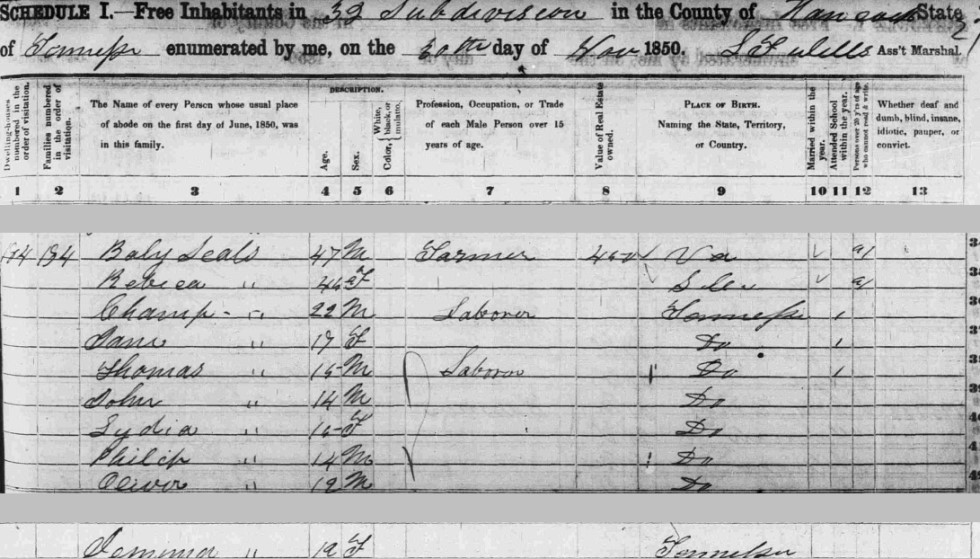 SCHEDULE I.—Free Inhabitants in 33 Subdivision in the County of Hancock State
of Tennessee enumerated by me, on the 20th day of Nov 1850. Ass't Marshal.
21
DESCRIPTION.
Dwelling-houses numbered in the order of visitation.
Families numbered in the order of visitation.
The Name of every Person whose usual place of abode on the first day of June, 1850, was in this family.
Age.
Sex.
Color, White, black, or mulatto.
Profession, Occupation, or Trade of each Male Person over 15 years of age.
Value of Real Estate owned.
PLACE OF BIRTH. Naming the State, Territory, or Country.
Married within the year.
Attended School within the year.
Persons over 20 y'rs of age who cannot read & write.
Whether deaf and dumb, blind, insane, idiotic, pauper, or convict.
1 2 3 4 5 6 7 8 9 10 11 12 13
134 Baly Seals 47 M Farmer 450 Va
Rebeca " 46 F
Champ " 22 M Laborer Tennessee
Jane " 17 F Do
Thomas " 15 M Laborer Do
John " 14 M Do
Lydia " 15 F Do
Philip " 14 M Do
Oliver " 12 M Do
Jemima " F Tennessee